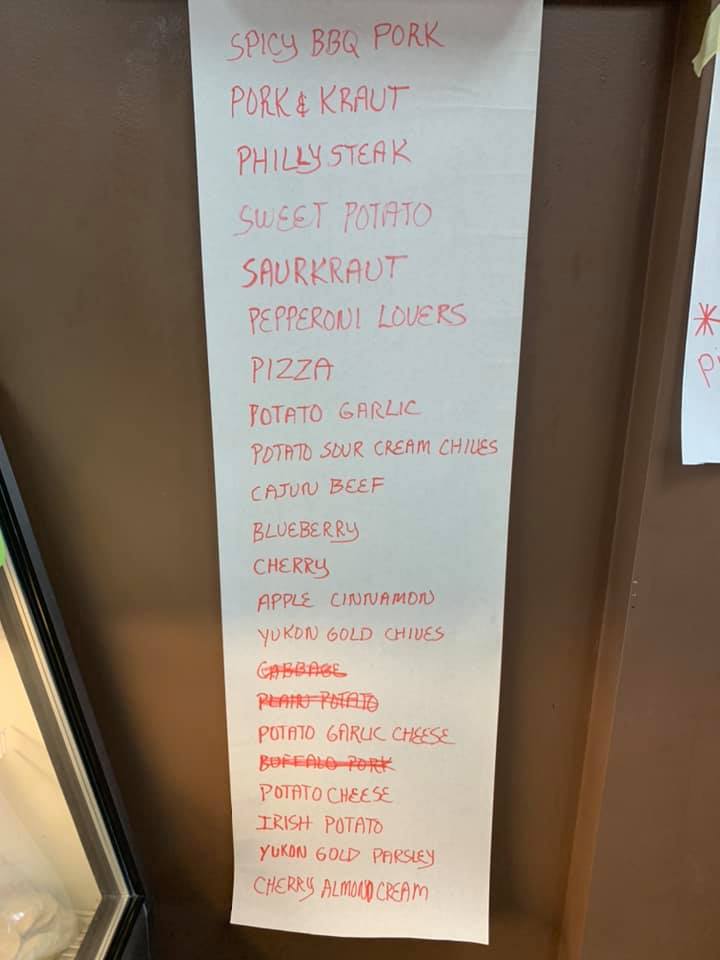 SPICY BBQ PORK
PORK & KRAUT
PHILLY STEAK
SWEET POTATO
SAURKRAUT
PEPPERONI LOVERS
PIZZA
POTATO GARLIC
POTATO SOUR CREAM CHIVES
CAJUN BEEF
BLUEBERRY
CHERRY
APPLE CINNAMON
YUKON GOLD CHIVES
CABBAGE
PLAIN POTATO
POTATO GARLIC CHEESE
BUFFALO PORK
POTATO CHEESE
IRISH POTATO
YUKON GOLD PARSLEY
CHERRY ALMOND CREAM
*